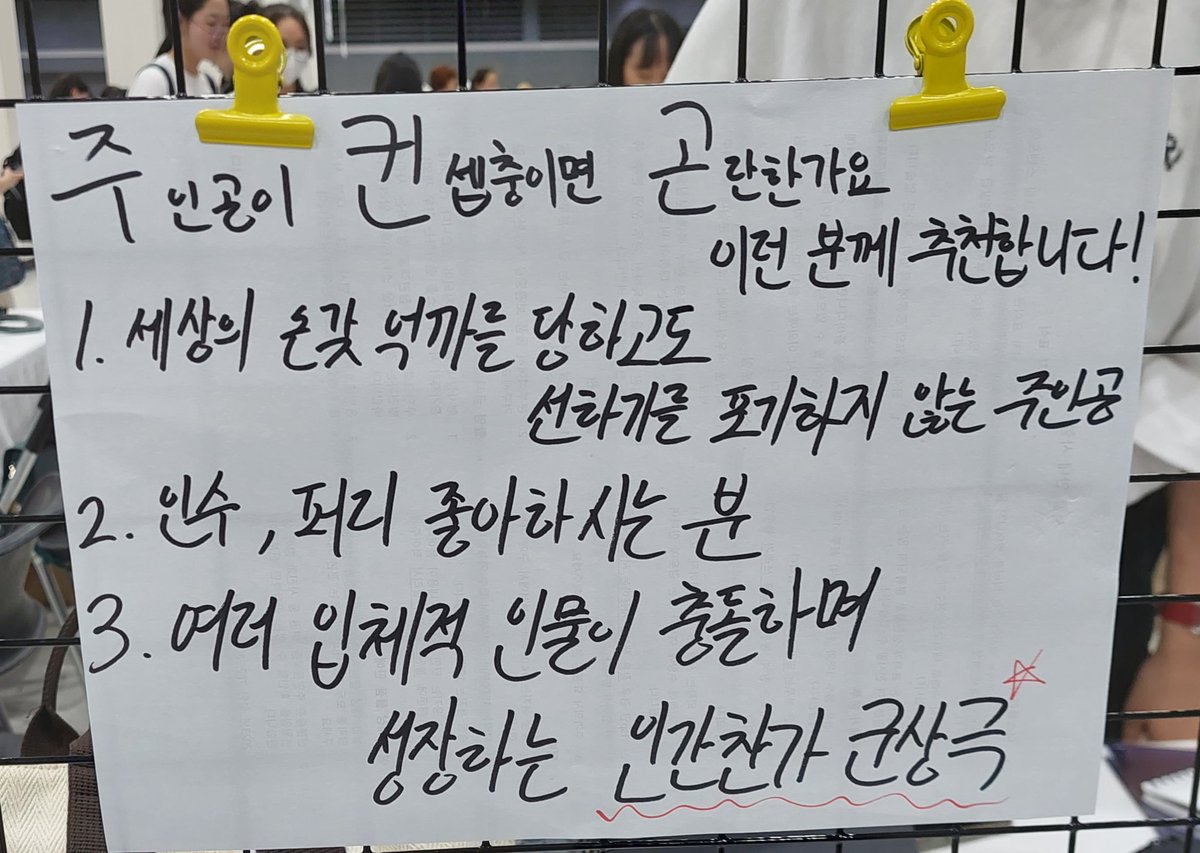 주인공이 컨셉충이면 곤란한가요
이런 분께 추천합니다!
1. 세상의 온갖 억까를 당하고도
선하기를 포기하지 않는 주인공
2. 인수, 퍼리 좋아하시는 분
3. 여러 입체적 인물이 충돌하며
성장하는 인간찬가 군상극